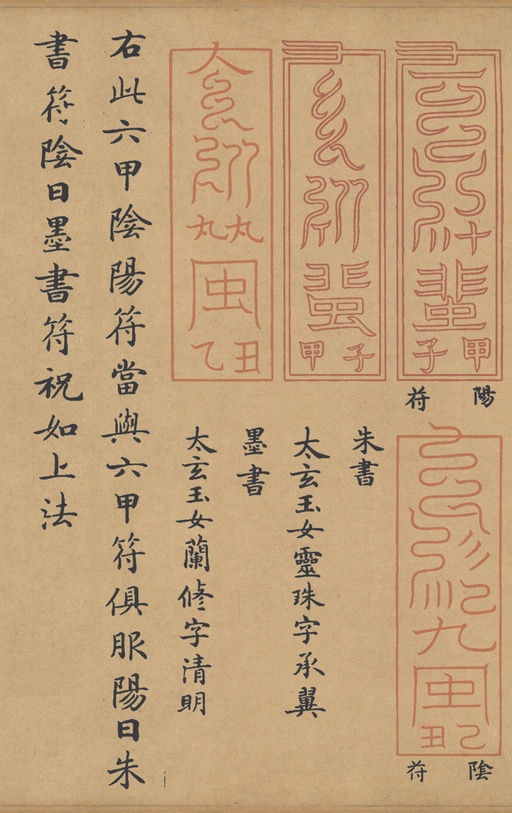 甲子
陽符
九
虫
乙丑
陰符
子甲
朱書
太玄玉女靈珠字承翼
丸丸
虫
丑乙
墨書
太玄玉女蘭修字清明
右此六甲陰陽符當與六甲符俱服陽日朱
書符陰日墨書符祝如上法